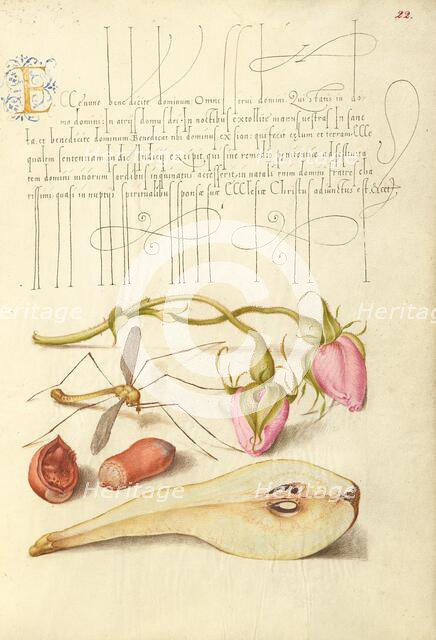 22.
Ecce nunc benedicite dominum: Omnes servi domini. Qui statis in do
mo domini: in atrijs domus dei. In noctibus extollite manus vestras in sanc
ta: et benedicite dominum. Benedicat tibi dominus ex sion: qui fecit cælum et terram. Ille
qualem sententiam die Iudicij excipit, qui
tem domini vinorum sordibus inquinatus accesserit, in natali enim domini
rissimi, quasi in nuptijs spiritualibus sponsæ suæ Ecclesiæ Christus adiunctus est.
Heritage
Heritage
Heritage
Heritage